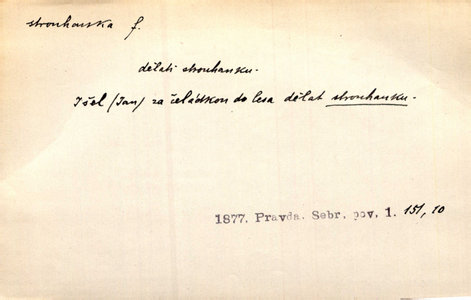 strouhanka f.
dělati strouhanku.
I šel (Jan) za čeládkou do lesa dělat strouhanku.
1877. Pravda. Sebr. pov. 1. 151, 10